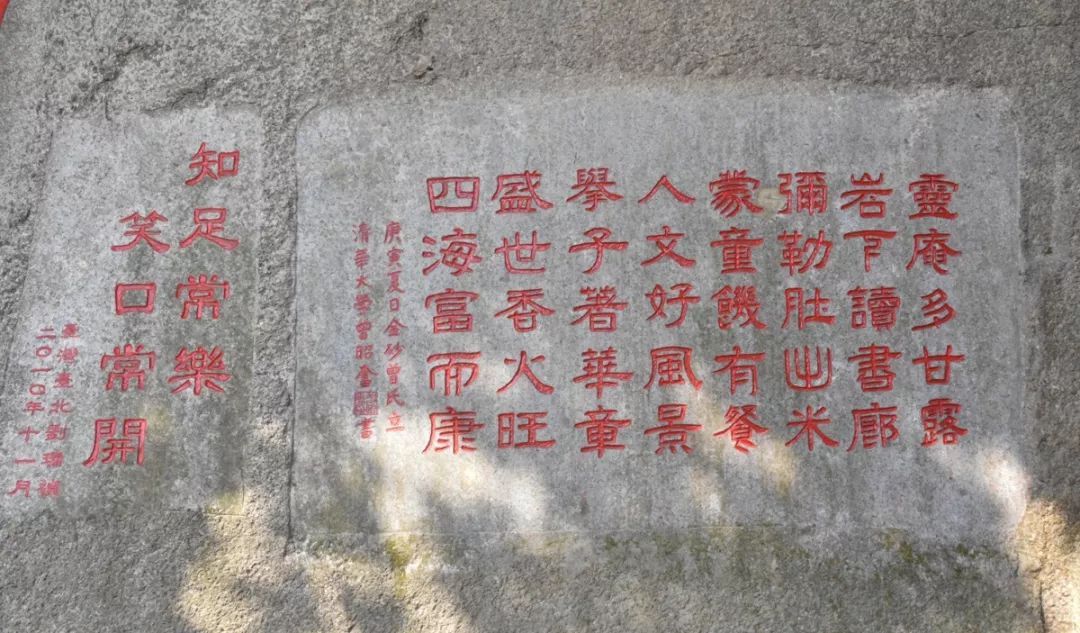 靈庵多甘露
岩下讀書廊
彌勒肚出米
蒙童饑有餐
人文好風景
擧子著華章
盛世香火旺
四海富而康
庚寅夏日金砂曾民立
清華大學曾昭奮書
知足常樂
笑口常開
臺灣臺北劉
二〇一〇年十一月